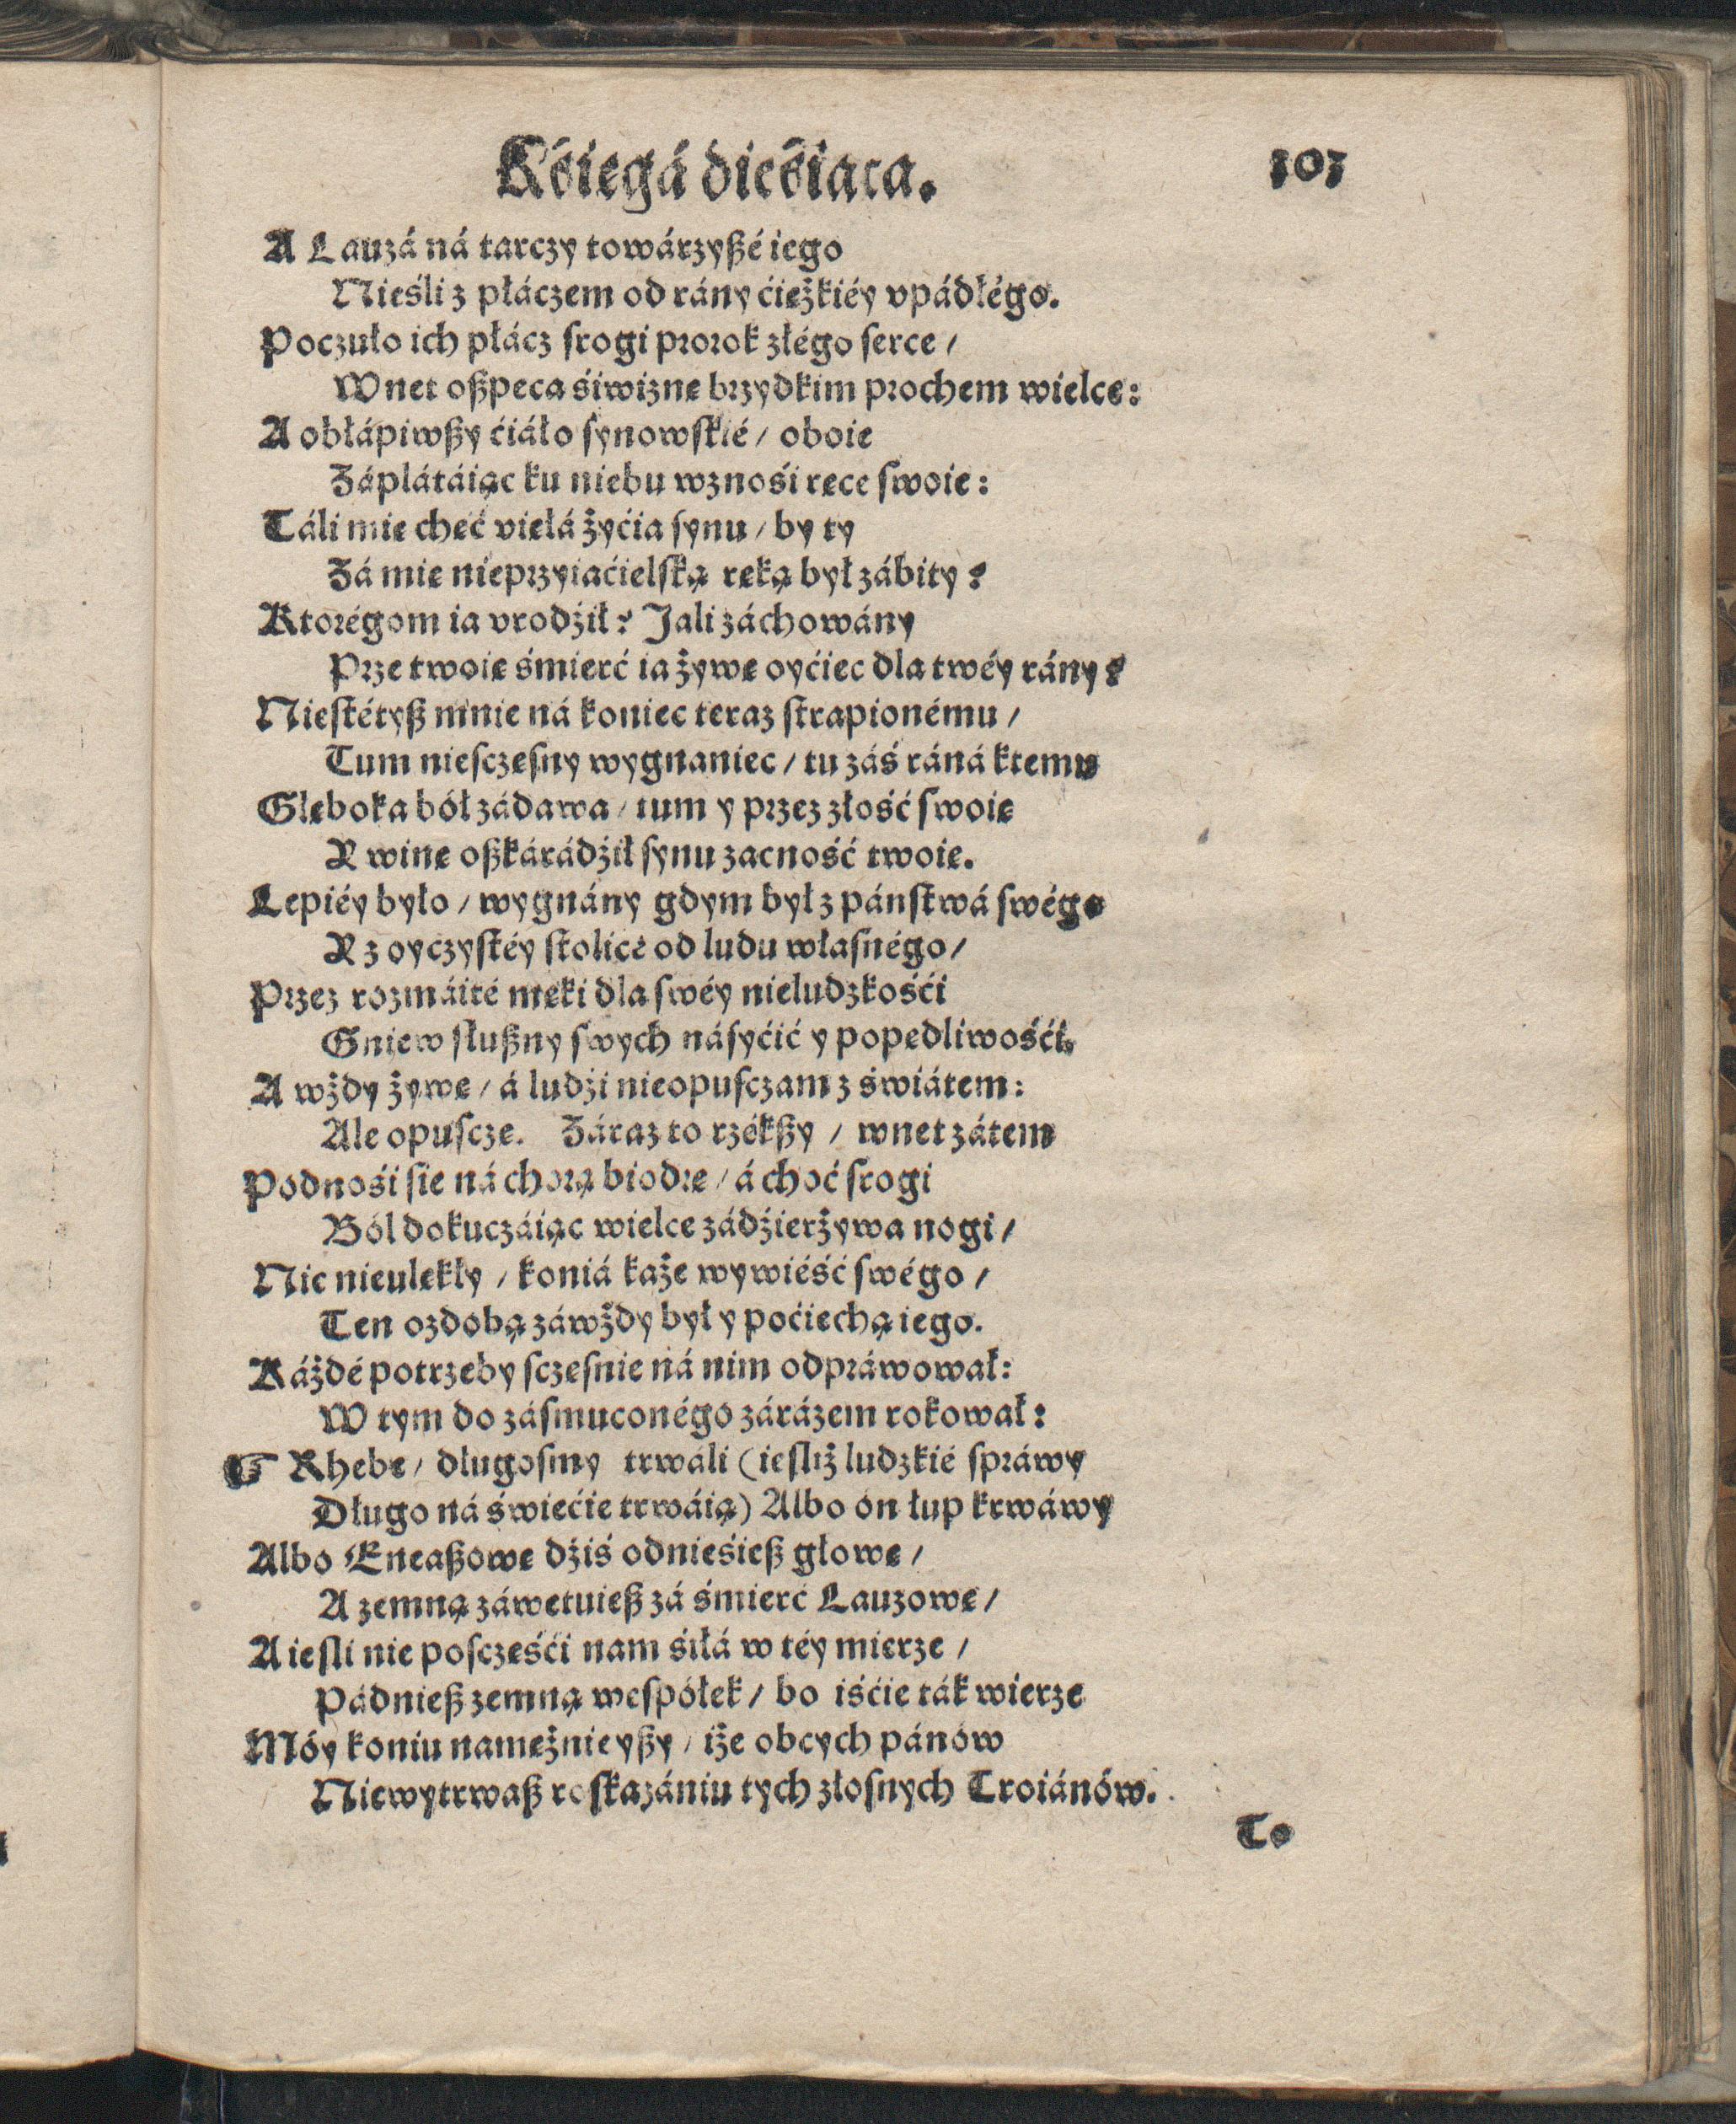 Kśięgá dieśiąta. 303
A Lauzá ná tarczy towárzyßé iego
Nieśli z płáczem od rány ćięzkiéy vpádłégo.
Poczuło ich płácz ſrogi prorok złégo ſerce /
Wnet oßpeca śiwiznę brzydkim prochem wielce:
A obłápiwßy ćiáło ſynowſkié / oboie
Záplátáiąc ku niebu wznośi ręce ſwoie:
Táli mię chęć vięłá żyćia ſynu / by ty
Zá mię nieprzyiaćielſką ręką był zábity?
Ktorégom ia vrodźił? Jali záchowány
Prze twoię śmierć ia żywę oyćiec dla twéy rány?
Nieſtétyß mnie ná koniec teraz ſtrapionému /
Tum nieſczęſny wygnaniec / tu záś ráná ktemu
Głęboka ból zádawa / tum y przez złość ſwoię
Y winę oßkárádźił ſynu zacność twoię.
Lepiéy było / wygnány gdym był z pánſtwá ſwégo
Y z oyczyſtéy ſtolice od ludu właſnégo /
Przez rozmáité męki dla ſwéy nieludzkośći
Gniew ſłußny ſwych náſyćić y popędliwośći.
A wżdy żywę / á ludźi nieopuſczam z świátem:
Ale opuſczę. Záraz to rzékßy / wnet zátem
Podnośi ſie ná chorą biodrę / á choć ſrogi
Ból dokuczáiąc wielce zádźierżywa nogi /
Nic nieulękły / koniá każe wywiéść ſwégo /
Ten ozdobą záwżdy był y poćiechą iego.
Káżdé potrzeby ſczęſnie ná nim odpráwował:
W tym do záſmuconégo zárázem rokował:
☞ Rhebe / długoſmy trwáli (ieſliż ludzkié ſpráwy
Długo ná świećie trwáią) Albo ón łup krwáwy
Albo Eneaßowę dźiś odnieśieß głowę /
A zemną záwetuieß zá śmierć Lauzowę /
A ieſli nie poſczęśći nam śiłá w téy mierze /
Pádnieß zemną weſpółek / bo iśćie ták wierzę
Móy koniu namężnieyßy / iże obcych pánów
Niewytrwaß roſkazániu tych złoſnych Troiánów.
To